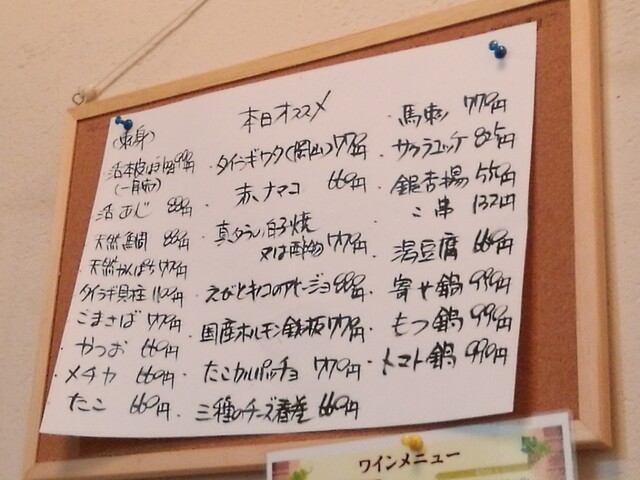 本日オススメ
(刺身)
(一肩)
活あじ 880円
天然真鯛 880円
天然かんぱち 770円
タイラギ貝柱
ごまさば 770円
・かつお 660円
・メヂカ 660円
・たこ 660円
・タイラギワタ(岡山) 770円
・赤ナマコ 660円
・真ダラ白子焼
又は酢物 770円
・えびときのこのアヒージョ 880円
・国産ホルモン鉄板 770円
・たこカルパッチョ 770円
・三種のチーズ春巻 660円
・馬刺 770円
・サクラユッケ 825円
・銀杏揚 550円
〃 串 132円
・湯豆腐 660円
・寄せ鍋 990円
・もつ鍋 990円
・トマト鍋 990円
ワインメニュー